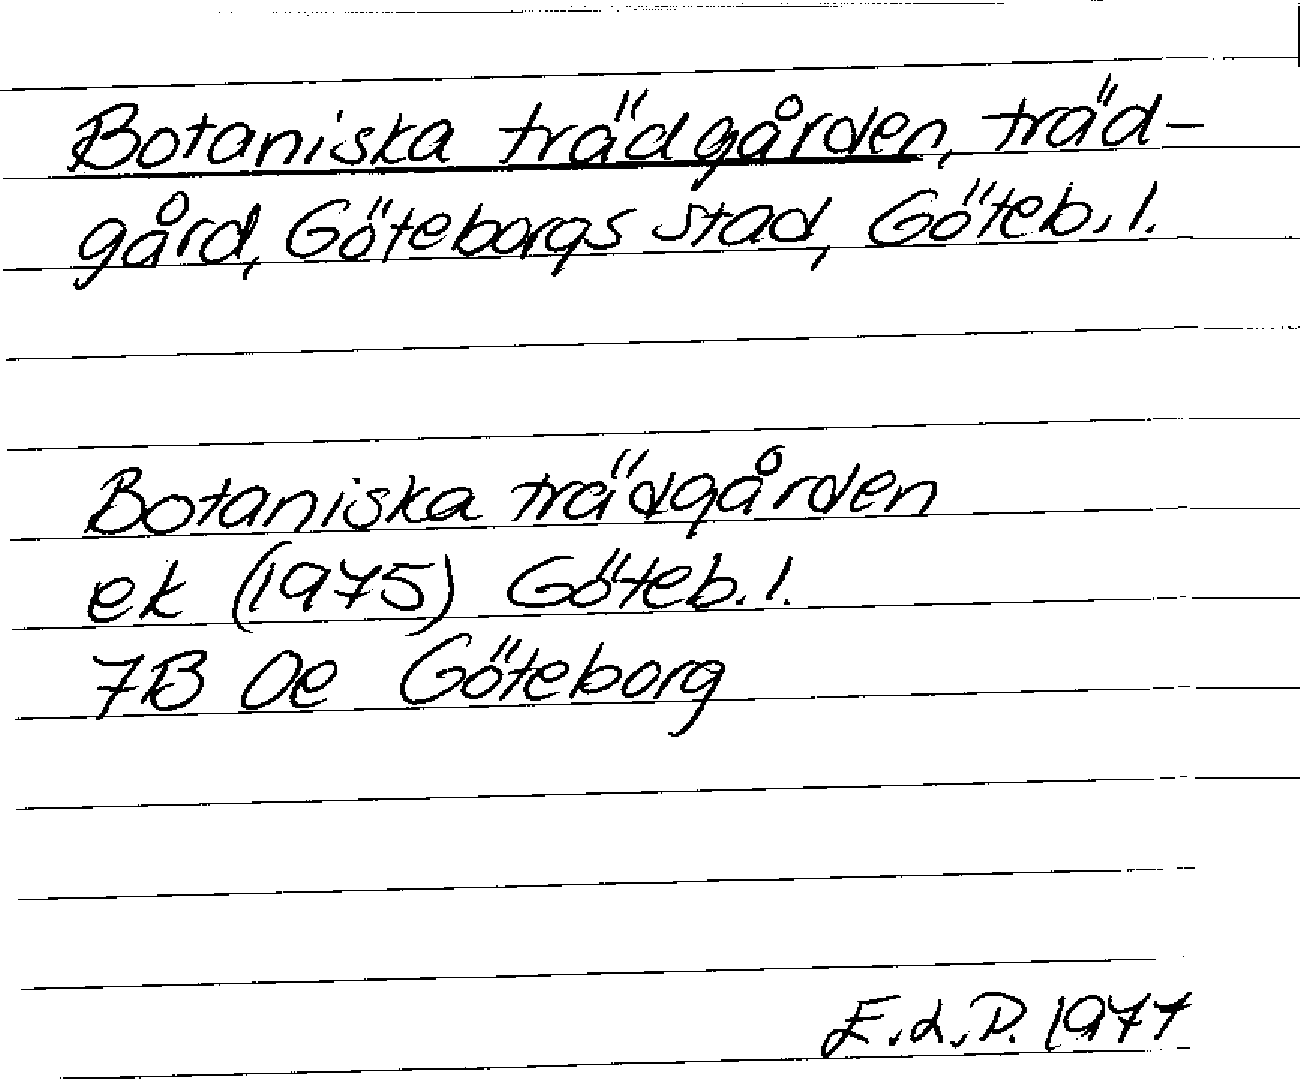 Botaniska trädgården, träd-
gård, Göteborgs stad, Göteb. l.
Botaniska trädgården
ek (1975) Göteb. l.
7B 0e Göteborg
E. d. P. 1977